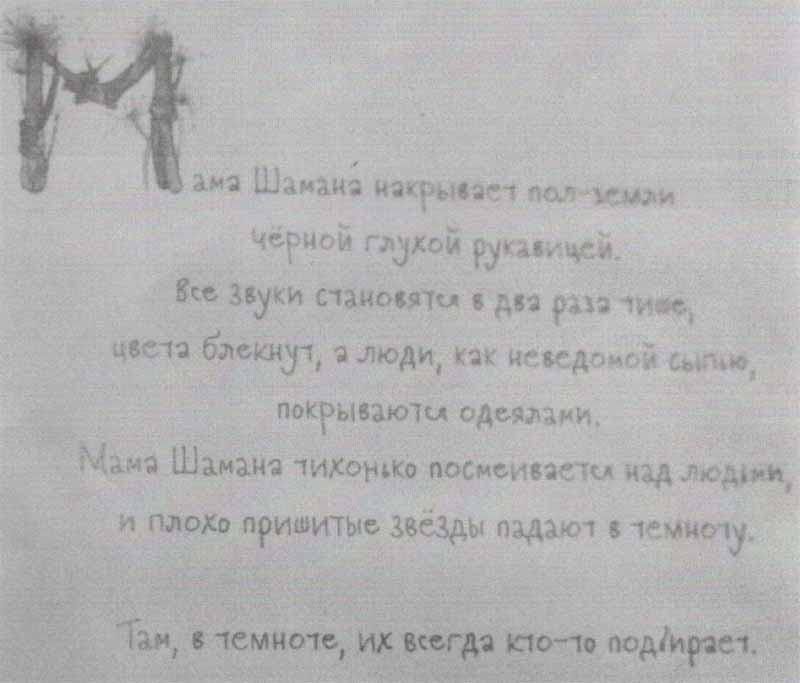 Мама Шамана́ накрывает пол-земли
чёрной глухой рукавицей.
Все звуки становятся в два раза тише,
цвета блекнут, а люди, как неведомой сыпью,
покрываются одеялами.
Мама Шамана тихонько посмеивается над людьми,
и плохо пришитые звёзды падают в темноту.
Там, в темноте, их всегда кто-то подбирает.